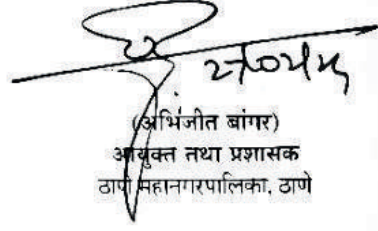 (अभिजीत बांगर)
आयुक्त तथा प्रशासक
ठाणे महानगरपालिका, ठाणे